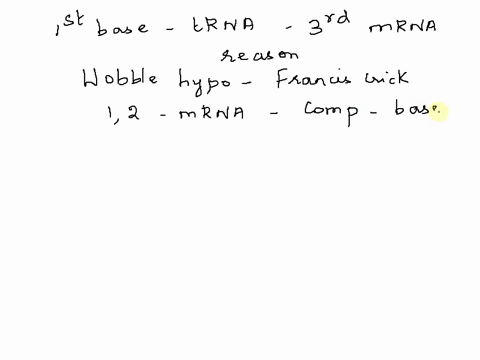 1st base - tRNA - 3rd mRNA
reason
Wobble hypo - Francis crick
1, 2 - mRNA - Comp - base